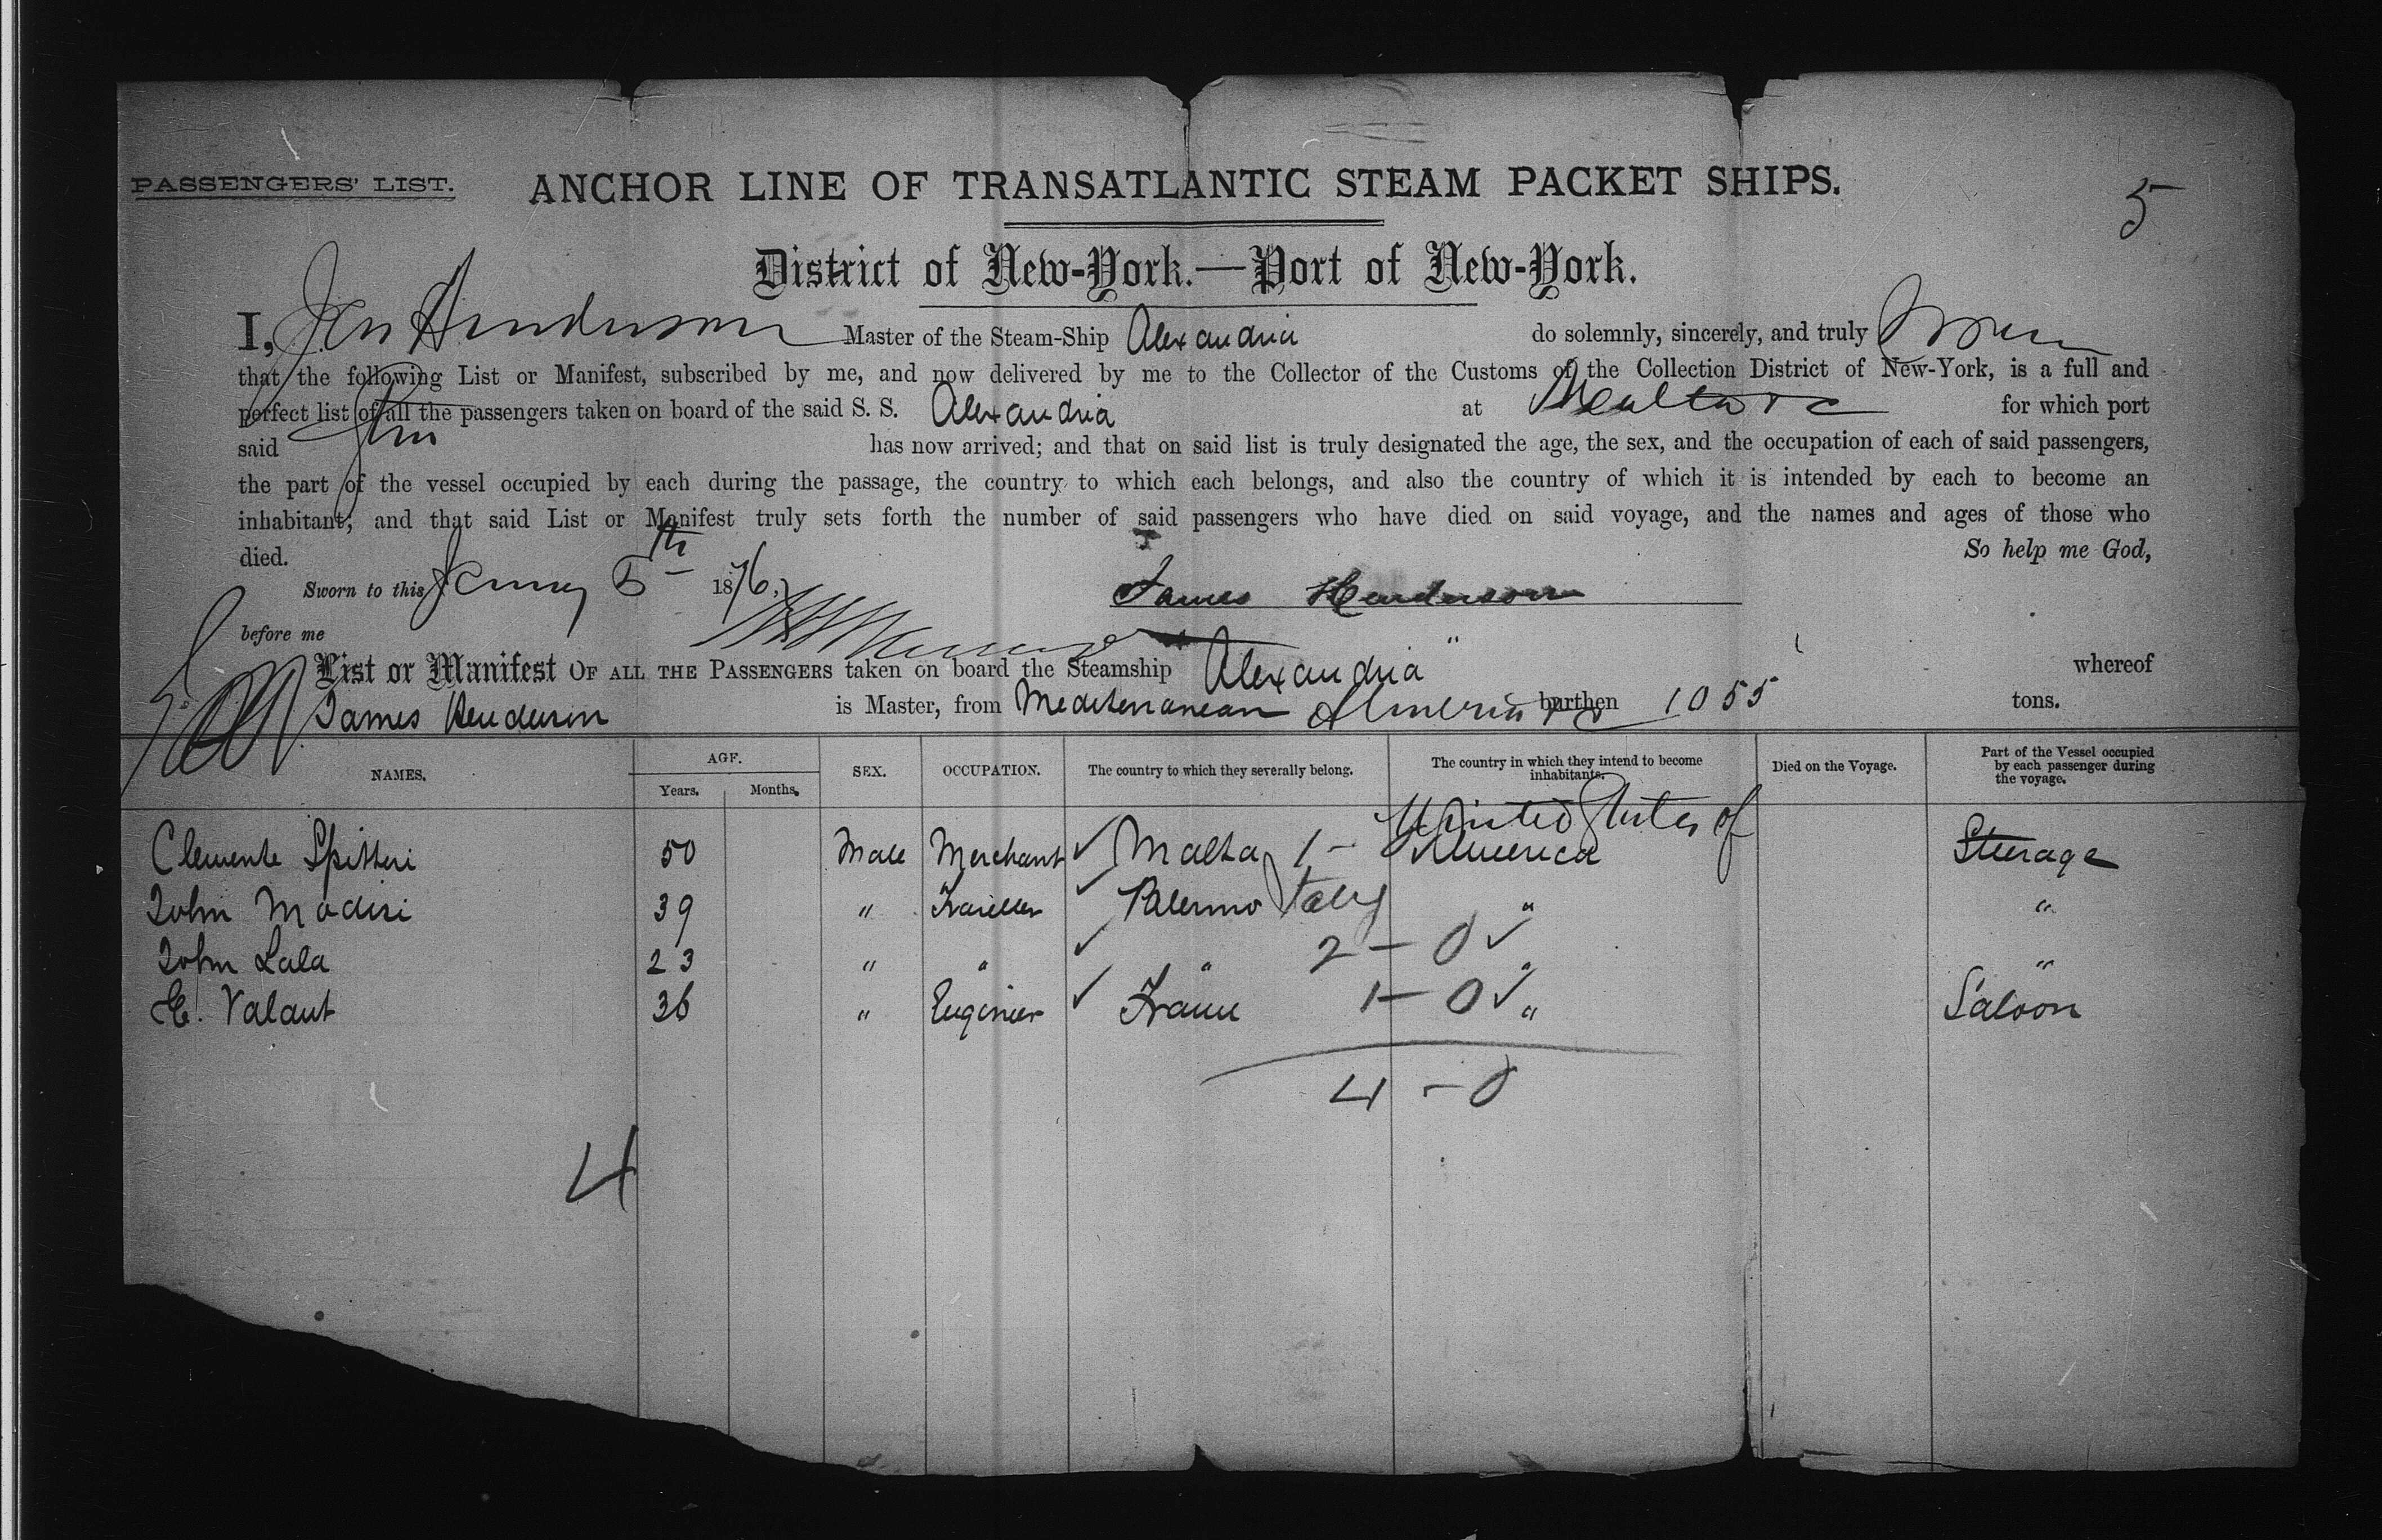 PASSENGERS' LIST. ANCHOR LINE OF TRANSATLANTIC STEAM PACKET SHIPS. 5
District of New-York.—Port of New-York.
I, Jas Henderson Master of the Steam-Ship Alexandria do solemnly, sincerely, and truly swear
that the following List or Manifest, subscribed by me, and now delivered by me to the Collector of the Customs of the Collection District of New-York, is a full and
perfect list of all the passengers taken on board of the said S. S. Alexandria at Malta &c for which port
said has now arrived; and that on said list is truly designated the age, the sex, and the occupation of each of said passengers,
the part of the vessel occupied by each during the passage, the country to which each belongs, and also the country of which it is intended by each to become an
inhabitant; and that said List or Manifest truly sets forth the number of said passengers who have died on said voyage, and the names and ages of those who
died. So help me God,
Sworn to this January 5th 1876, James Henderson
before me
List or Manifest OF ALL THE PASSENGERS taken on board the Steamship Alexandria" whereof
James Henderson is Master, from Mediterranean Almeria &c burthen 1055 tons.
NAMES. AGE. Years. Months. SEX. OCCUPATION. The country to which they severally belong. The country in which they intend to become inhabitants. Died on the Voyage. Part of the Vessel occupied by each passenger during the voyage.
Clemente Spitteri 50 Male Merchant ✓ Malta 1 - United States of America Steerage
John Modisi 39 " Traveller ✓ Palermo Italy " "
John Lala 23 " " ✓ " 2 - 0 ✓ " "
E. Valant 36 " Engineer ✓ France 1 - 0 ✓ " Saloon
4 - 0
4